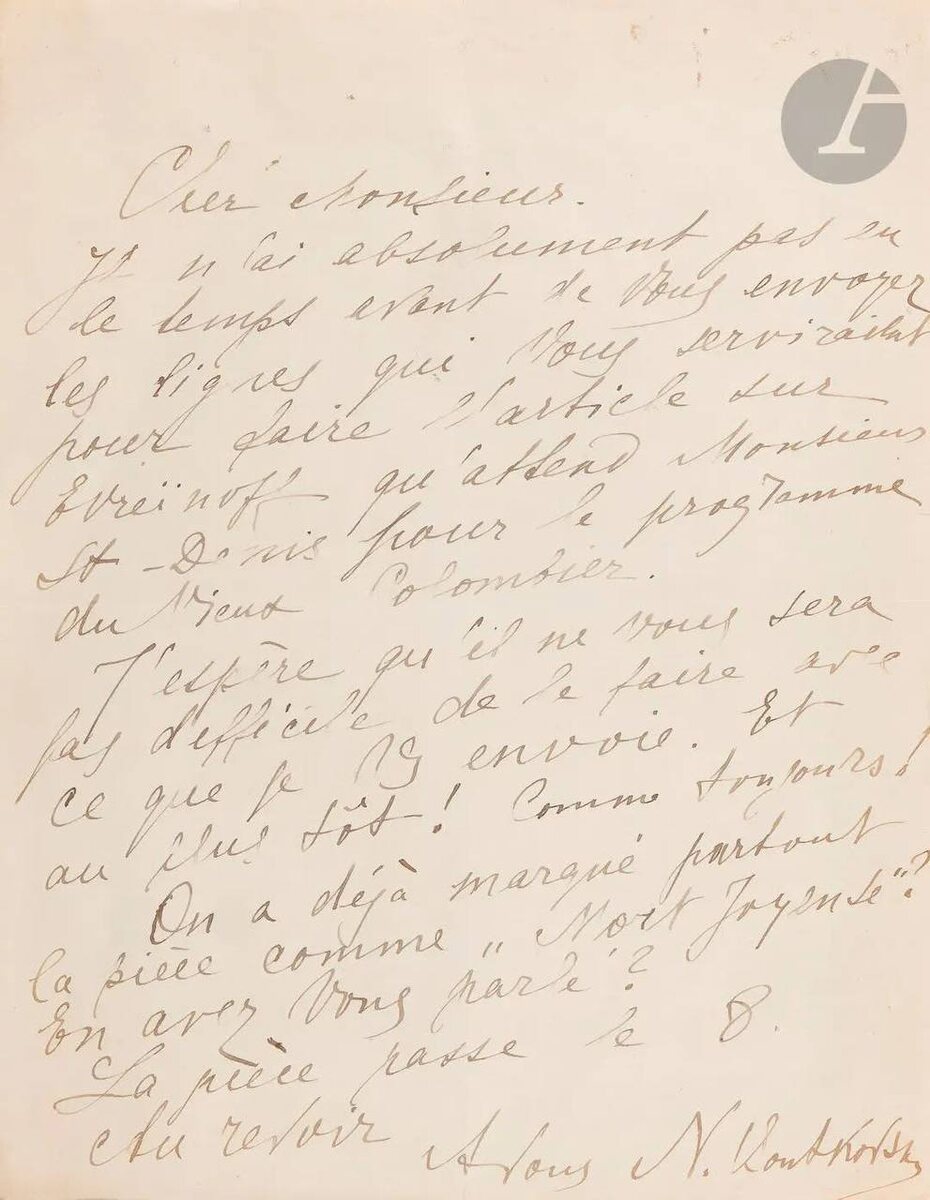 Cher Monsieur.
Je n'ai absolument pas eu
le temps avant de Vous envoyer
les lignes qui Vous serviraient
pour faire l'article sur
Evreïnoff qu'attend Monsieur
St-Denis pour le programme
du Vieux Colombier.
J'espère qu'il ne vous sera
pas difficile de le faire avec
ce que je Vs envoie. Et
au plus tôt! Comme toujours!
On a déjà marqué partout
la pièce comme „Mort Joyeuse"?
En avez Vous parlé?
La pièce passe le 8.
Au revoir
A Vous N.